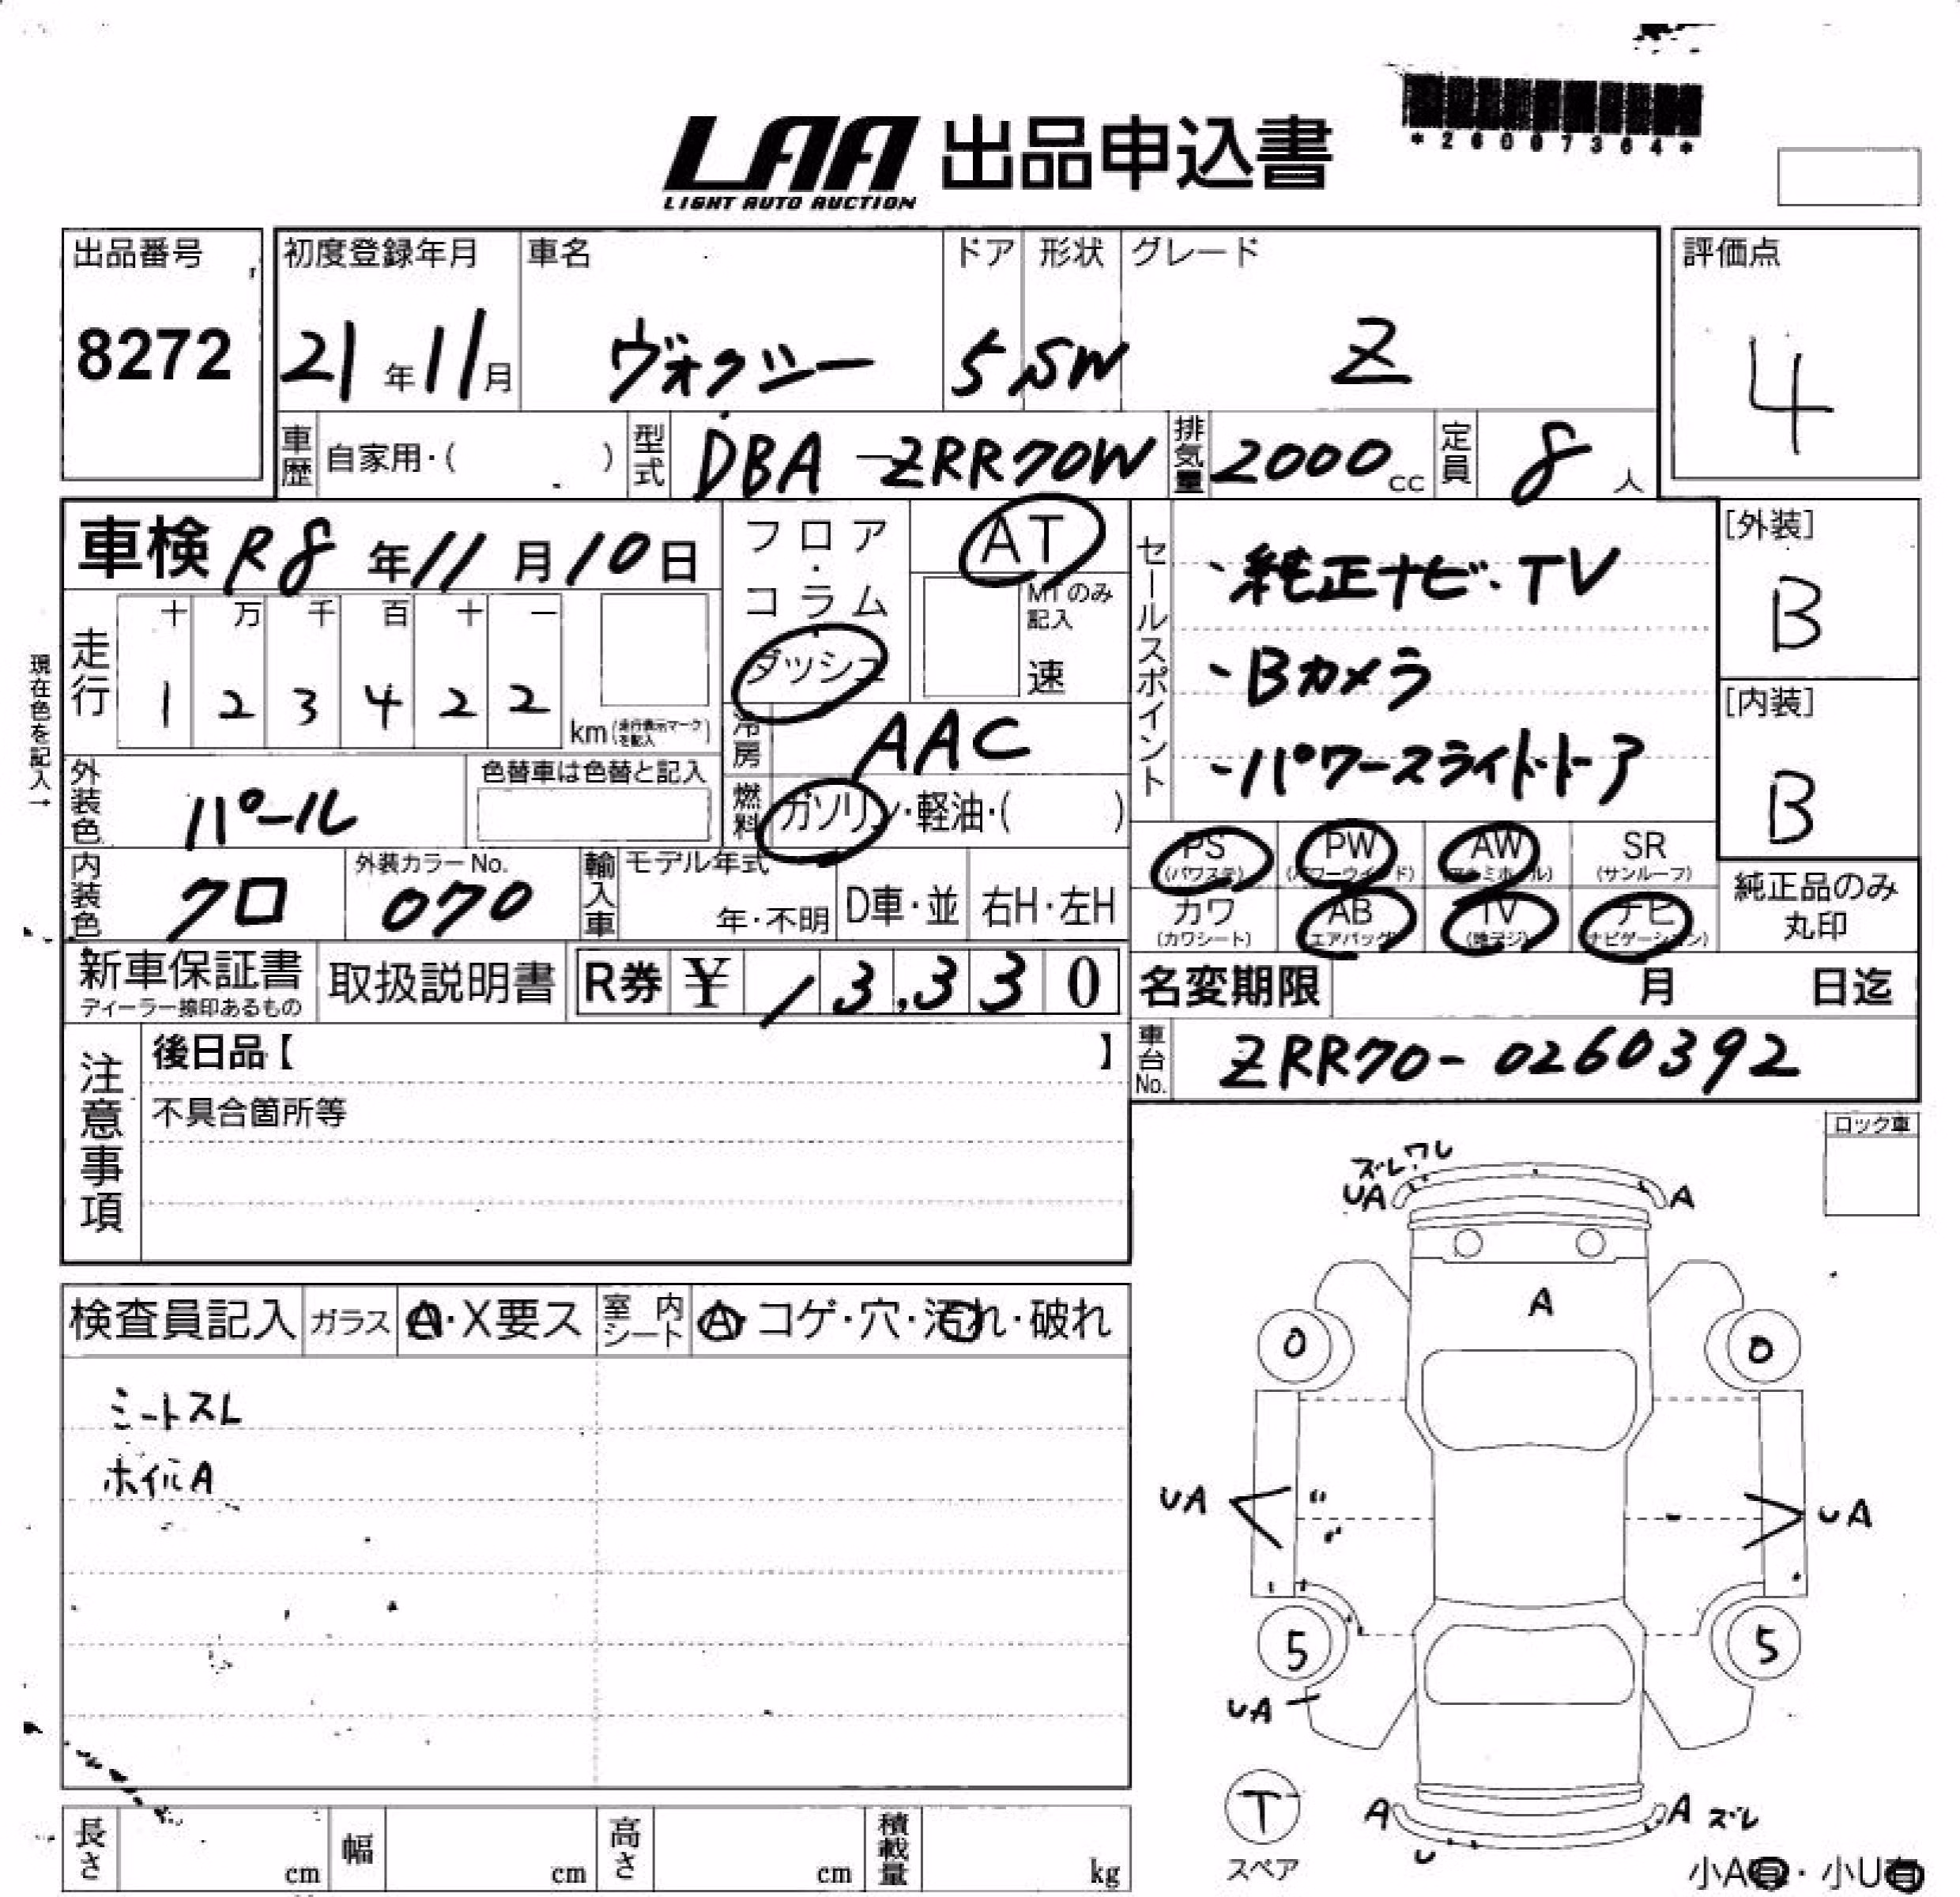 *26097364*
LAA 出品申込書
LIGHT AUTO AUCTION
出品番号 初度登録年月 車名 ドア 形状 グレード 評価点
8272 21年11月 ヴォクシー 5 SW Z 4
車歴 自家用・( ) 型式 DBA-ZRR70W 排気量 2000cc 定員 8人
車検 R8年11月10日 フロア・コラム ダッシュ AT
MTのみ記入 速
セールスポイント
・純正ナビ・TV
・Bカメラ
・パワースライドドア
[外装]
B
[内装]
B
現在色を記入→
走行 十 万 千 百 十 一
1 2 3 4 2 2 km(走行表示マークを記入)
冷房 AAC
外装色 パール 色替車は色替と記入 燃料 ガソリン・軽油・( )
PS (パワステ) PW (パワーウインド) AW (アルミホイル) SR (サンルーフ)
カワ (カワシート) AB (エアバッグ) TV (地デジ) ナビ (ナビゲーション)
純正品のみ
丸印
内装色 クロ 外装カラーNo. 070 輸入車 モデル年式 年・不明 D車・並 右H・左H
新車保証書 ディーラー捺印あるもの 取扱説明書 R券 ¥ 13,330 名変期限 月 日迄
車台No. ZRR70-0260392
注意事項 後日品【 】
不具合箇所等
ロック車
検査員記入 ガラス A・X要ス 室内シート A・コゲ・穴・汚れ・破れ
シートスレ
ホイルA
ズレ.ワレ
UA A
A
0 0
UA 〃 UA
〃
5 5
UA
T
スペア
A A ズレ
U
小A有・小U有
長さ cm 幅 cm 高さ cm 積載量 kg